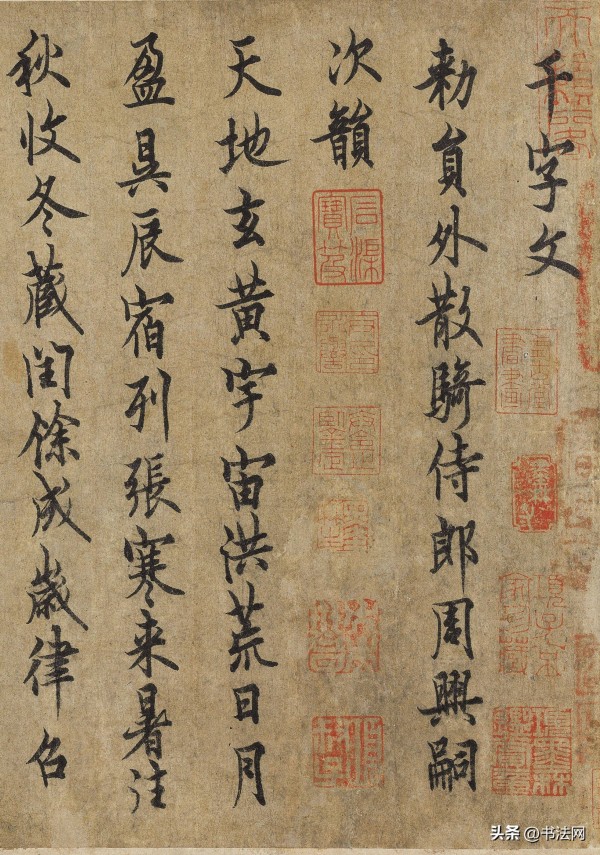 千字文
勅員外散騎侍郎周興嗣
次韻
天地玄黃宇宙洪荒日月
盈昃辰宿列張寒来暑往
秋收冬蔵閏餘成歲律召
头条 @书法网